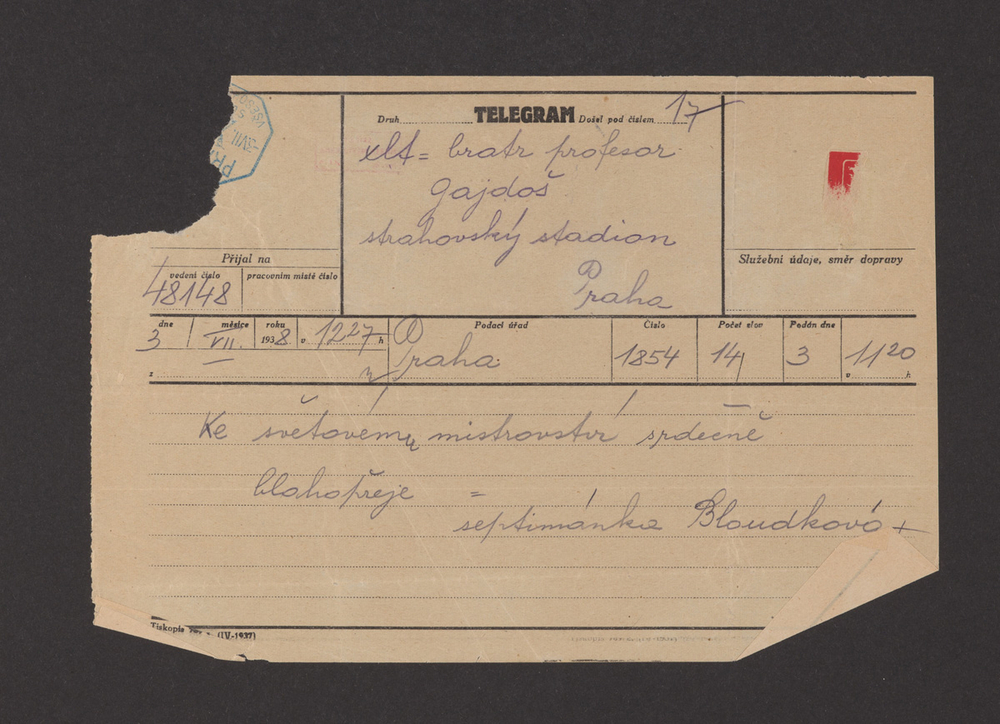 Druh TELEGRAM Došel pod číslem 17
xlt = bratr profesor
Gajdoš
strahovský stadion
Praha
Přijal na
vedení číslo pracovním místě číslo
48148
Služební údaje, směr dopravy
dne měsíce roku
3 VII. 1938 v 1227 h
Podací úřad Číslo Počet slov Podán dne
Praha 1854 14 3 v 1120 h
z
Ke světovému mistrovství srdečně
blahopřeje =
septimánka Bloudková +
Tiskopis (IV-1937)